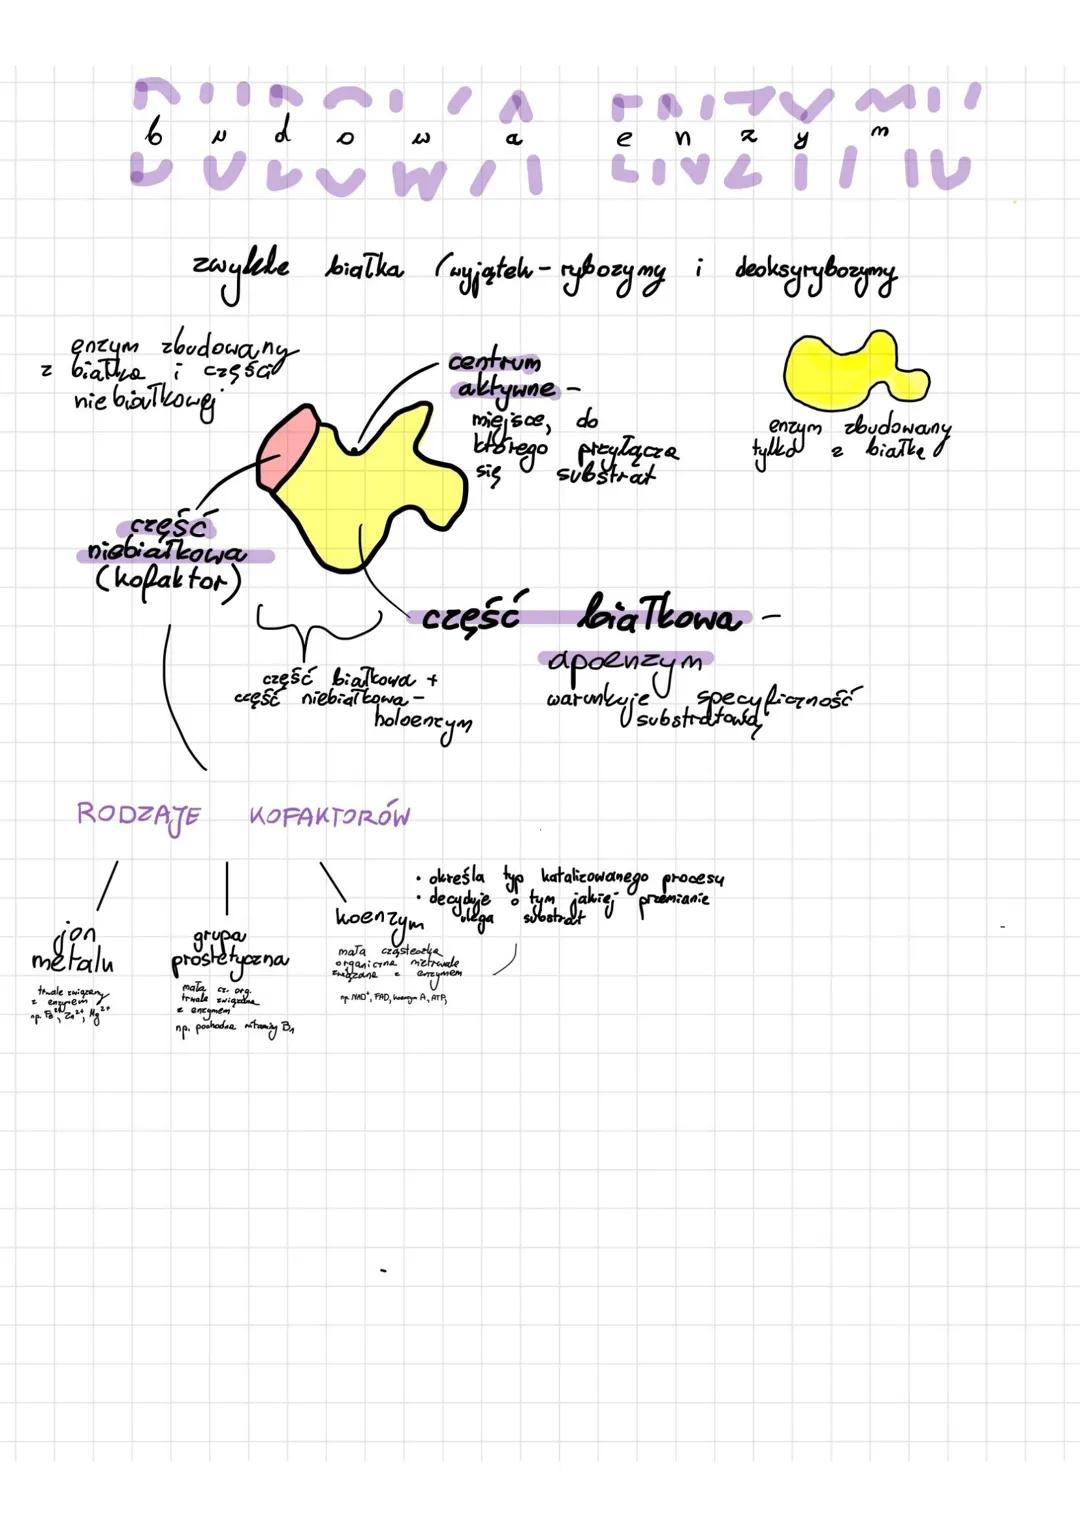 budowa enzym
zwykle białka (wyjątek - rybozymy i deoksyrybozymy
enzym zbudowany
z białka i części
niebiałkowej
centrum
aktywne -
miejsce, do
którego przyłącza
się substrat
enzym zbudowany
tylko z białka
część
niebiałkowa
(kofaktor)
część białkowa -
apoenzym
warunkuje specyficzność
substratową
część białkowa +
część niebiałkowa -
holoenzym
RODZAJE KOFAKTORÓW
jon
metalu
trwale związany
z enzymem
np. Fe²⁺, Zn²⁺, Mg²⁺
grupa
prostetyczna
mała cz. org.
trwale związana
z enzymem
np. pochodna witaminy B₁
koenzym
mała cząsteczka
organiczna nietrwale
związana z enzymem
np. NAD⁺, FAD, koenzym A, ATP,
· określa typ katalizowanego procesu
· decyduje o tym jakiej przemianie
ulega substrat